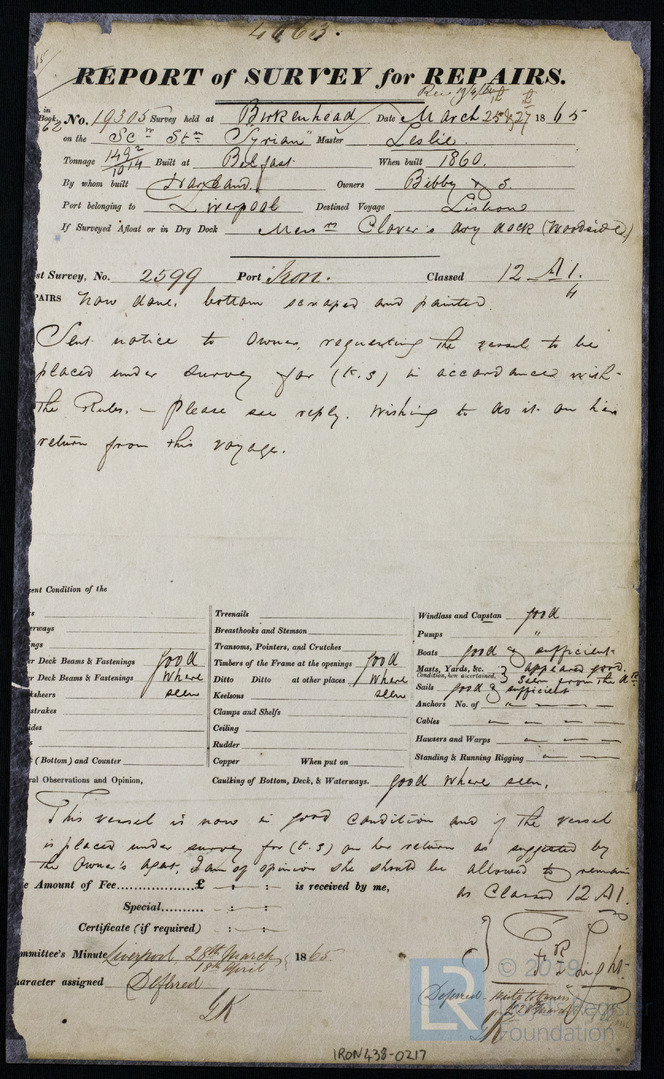 4663.
REPORT of SURVEY for REPAIRS.
in Book No. 19305 Survey held at Birkenhead Date March 25 & 27 1865
on the Scr Stm "Syrian" Master Leslie
Tonnage 1492/1014 Built at Belfast When built 1860.
By whom built Harland. Owners Bibby & S.
Port belonging to Liverpool Destined Voyage Lisbon
If Surveyed Afloat or in Dry Dock Messrs Clover's dry dock (Woodside)
st Survey, No. 2599 Port Iron. Classed 12 A1.
PAIRS now done, bottom scraped and painted.
Sent notice to Owner, requesting the vessel to be
placed under survey for (t.s) in accordance with
the Rules. – Please see reply. Wishing to do it on her
return from this voyage.
ent Condition of the
Treenails
Windlass and Capstan good
Breasthooks and Stemson
Pumps "
erways
Transoms, Pointers, and Crutches
Boats good & sufficient
ngs
er Deck Beams & Fastenings good
Timbers of the Frame at the openings good
Masts, Yards, &c. } appeared good
Condition, how ascertained. } seen from the Deck
er Deck Beams & Fastenings where
Ditto Ditto at other places where
Sails good & sufficient
ksheers seen
Keelsons seen
Anchors No. of "
strakes
Clamps and Shelfs
Cables
ides
Ceiling
Hawsers and Warps
Rudder
Standing & Running Rigging
(Bottom) and Counter
Copper When put on
ral Observations and Opinion,
Caulking of Bottom, Deck, & Waterways. good where seen.
This vessel is now in good condition and if the vessel
is placed under survey for (t.s) on her return as suggested by
the Owner's agent, I am of opinion she should be allowed to remain
as Classed 12 A1.
e Amount of Fee............... £ is received by me,
Special...............
Certificate (if required)
mmittee's Minute Liverpool 28th March 1865
18th April
haracter assigned Deferred
GK
Light
Deferred
GK
LR © 2019
Lloyd's Register
Foundation
IRON438-0217